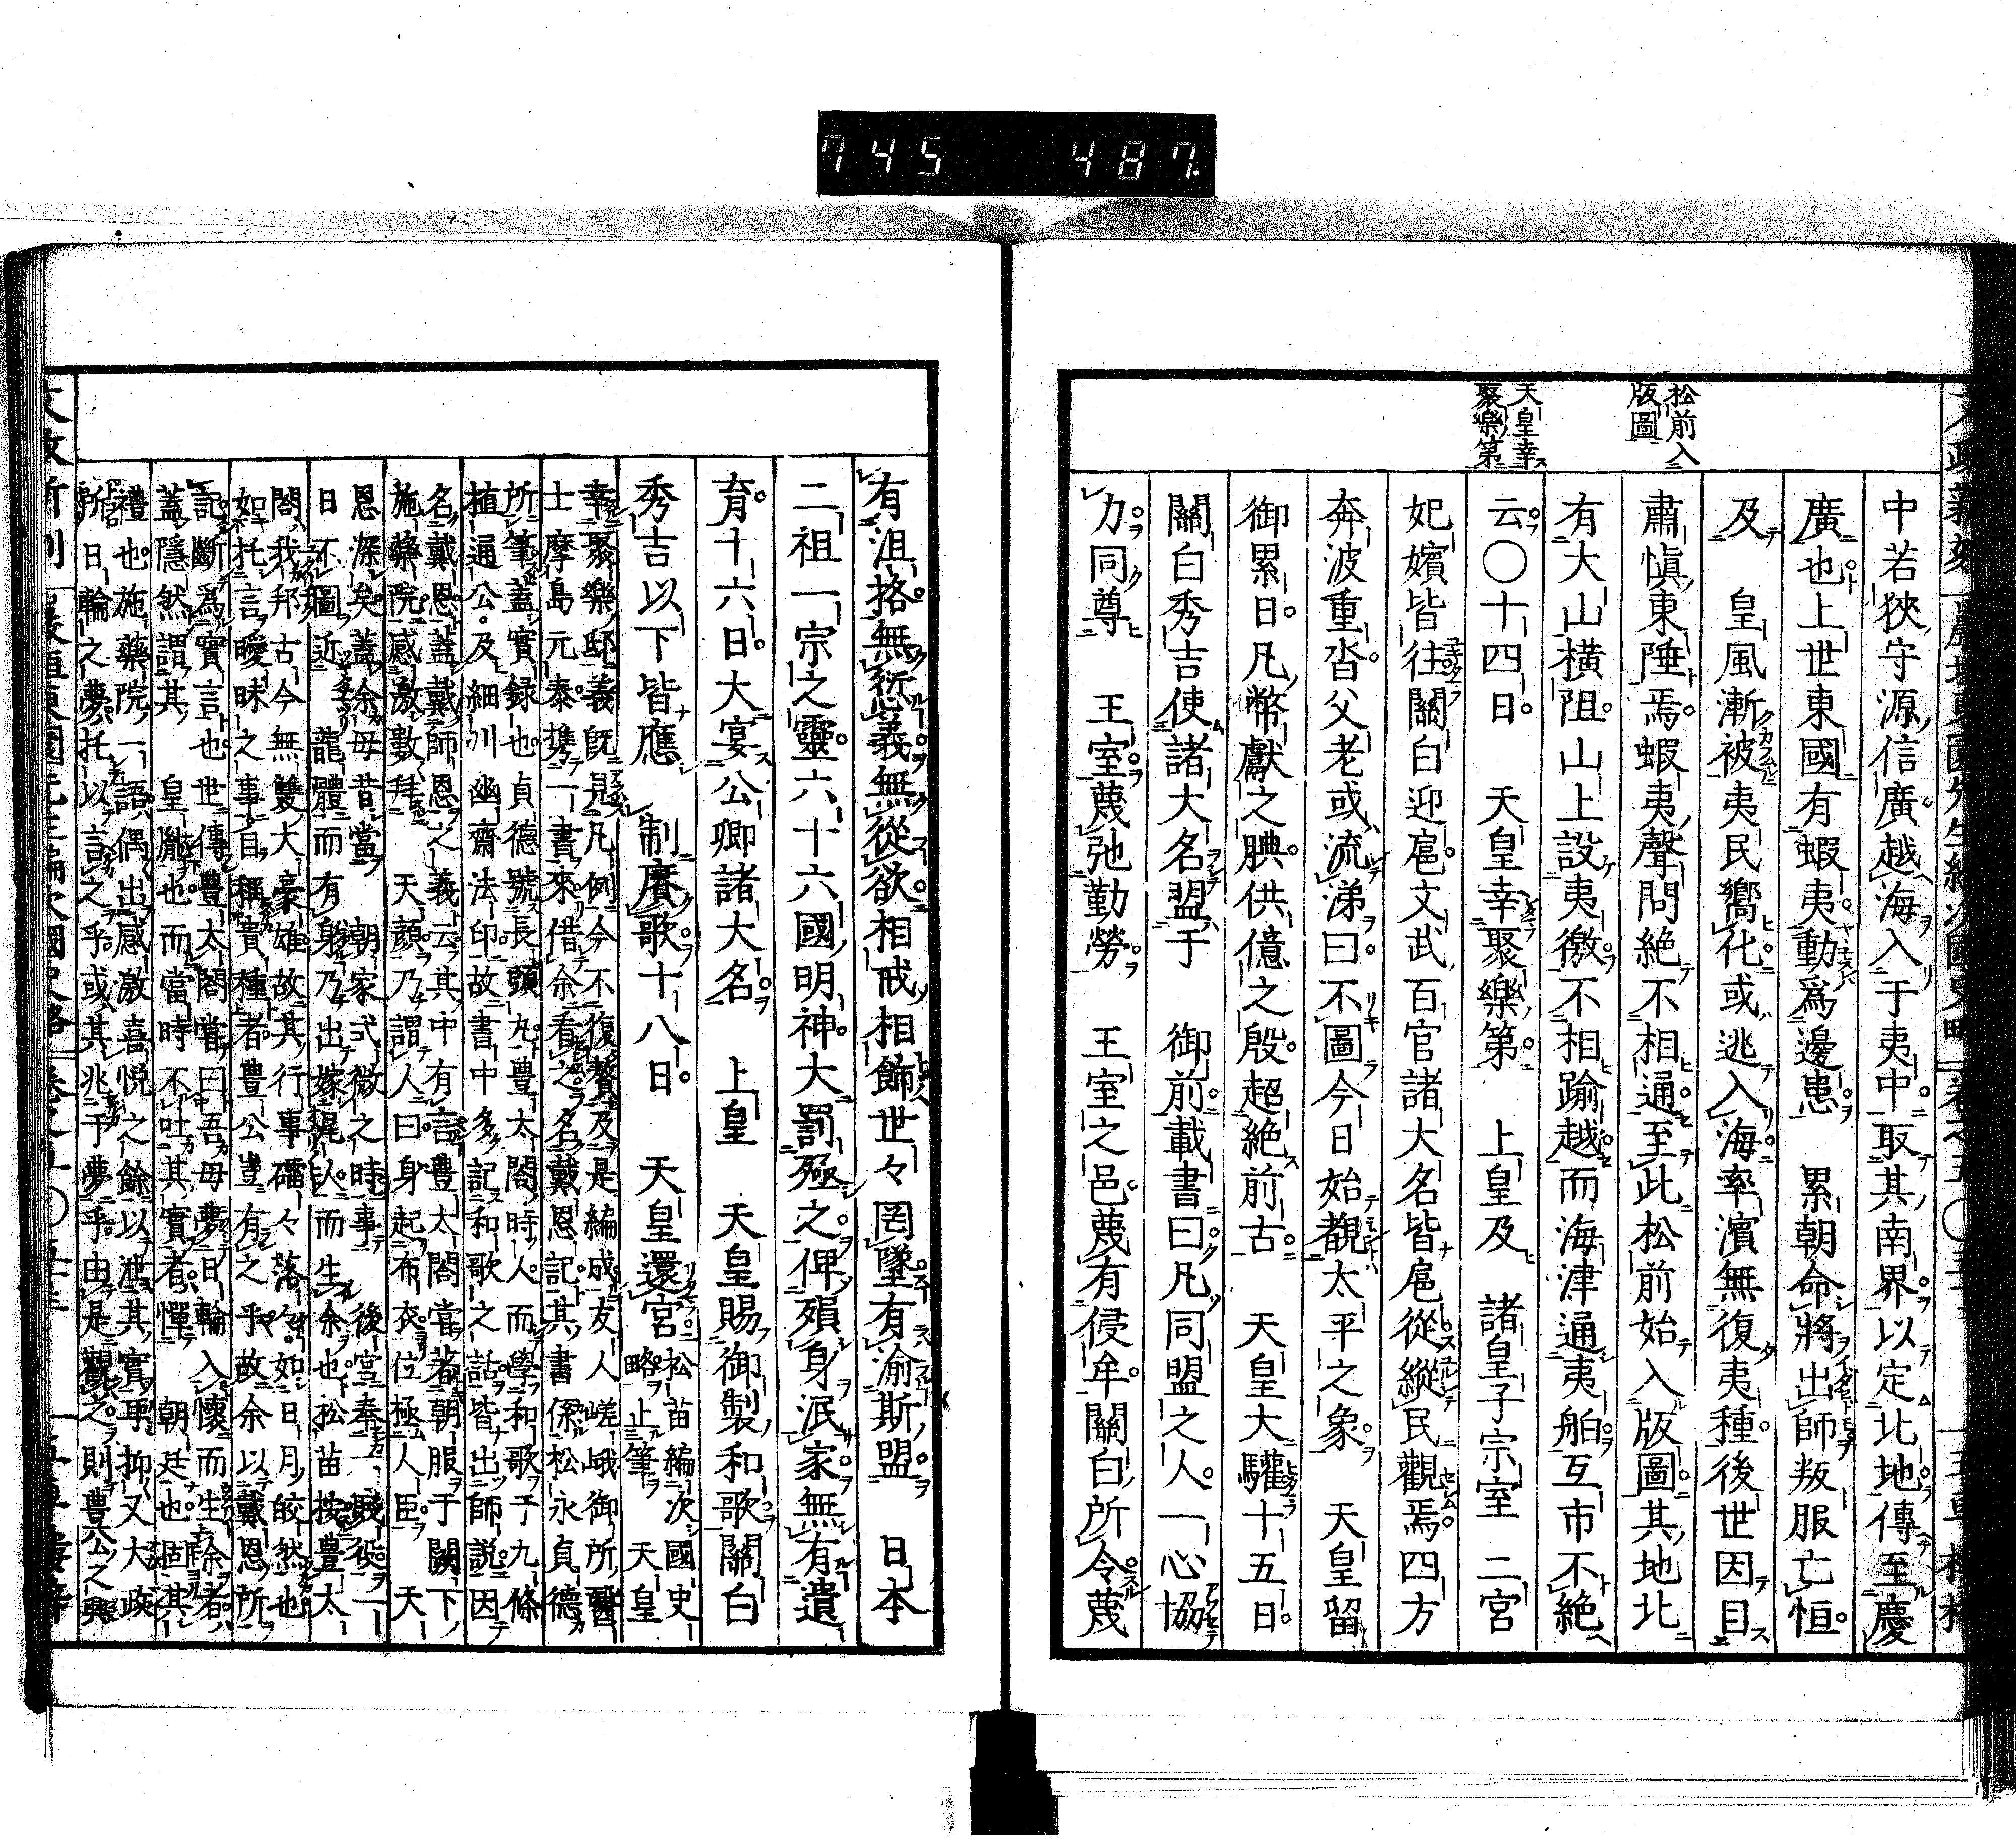 745 487.
松前入
版圖
天皇幸
聚樂第
中若狹守源信廣越海入于夷中取其南界以定北地傳至慶
廣也上世東國有蝦夷動爲邊患　累朝命將出師叛服亡恒
及　皇風漸被夷民嚮化或逃入海率濱無復夷種後世因目
肅愼東陲焉蝦夷聲問絶不相通至此松前始入版圖其地北
有大山橫阻山上設夷徼不相踰越而海津通夷舶互市不絶
云○十四日　天皇幸聚樂第　上皇及　諸皇子宗室　二宮
妃嬪皆往關白迎扈文武百官諸大名皆扈從縱民觀焉四方
奔波重沓父老或流涕曰不圖今日始覩太平之象　天皇留
御累日凡幣獻之腆供億之殷超絶前古　天皇大驩十五日
關白秀吉使諸大名盟于　御前載書曰凡同盟之人一心協
力同尊　王室蔑弛勤勞　王室之邑蔑有侵牟關白所令蔑
有沮撓無愆義無從欲相戒相飾世々罔墜有渝斯盟　日本
二祖一宗之靈六十六國明神大罰殛之俾殞身泯家無有遺
育十六日大宴公卿諸大名　上皇　天皇賜御製和歌關白
秀吉以下皆應　制賡歌十八日　天皇還宮
松苗編次國史
略止筆　天皇
幸聚樂邸義既見凡例今不復贅及是編成友人嵯峨御所醫
士摩島元泰携一書來借余看之名戴恩記其書係松永貞德
所筆蓋實録也貞德號長頭丸豐太閤時人而學和歌于九條
植通公及細川幽齋法印故書中多記和歌之話皆出師説因
名戴恩蓋戴師恩之義云其中有言豐太閤嘗着朝服于闕下
施藥院感激數拜　天顏乃謂人曰身起布衣位極人臣　天
恩深矣蓋余母昔當　朝家式微之時事　後宮奉一賤役一
日不圖近　龍體而有身乃出嫁尾人而生余也松苗按豐太
閤我邦古今無雙大豪雄故其行事礌々落々如日月皎然也
如托言曖昧之事自稱貴種者豐公豈有之乎故余以戴恩所
記斷爲實言也世傳豐太閤嘗曰吾母夢日輪入懷而生余者
蓋隱然謂其　皇胤也而當時不吐其實者憚　朝廷也固其
禮也施藥院一語偶出感激喜悦之餘以泄其實耳抑又大政
所日輪之夢托以言之乎或其兆于夢乎由是觀之則豐公之興